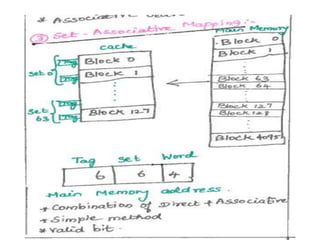 * Associative
③ Set-Associative Mapping:-
cache
Main Memory
Set 0
Tag Block 0
Tag Block 1
Set 63
Tag
Tag Block 127
Block 0
Block 1
Block 63
Block 64
Block 127
Block 128
Block 4095
Tag Set Word
6 6 4
Main Memory address.
* Combination of Direct + Associative
* Simple method
* Valid bit.